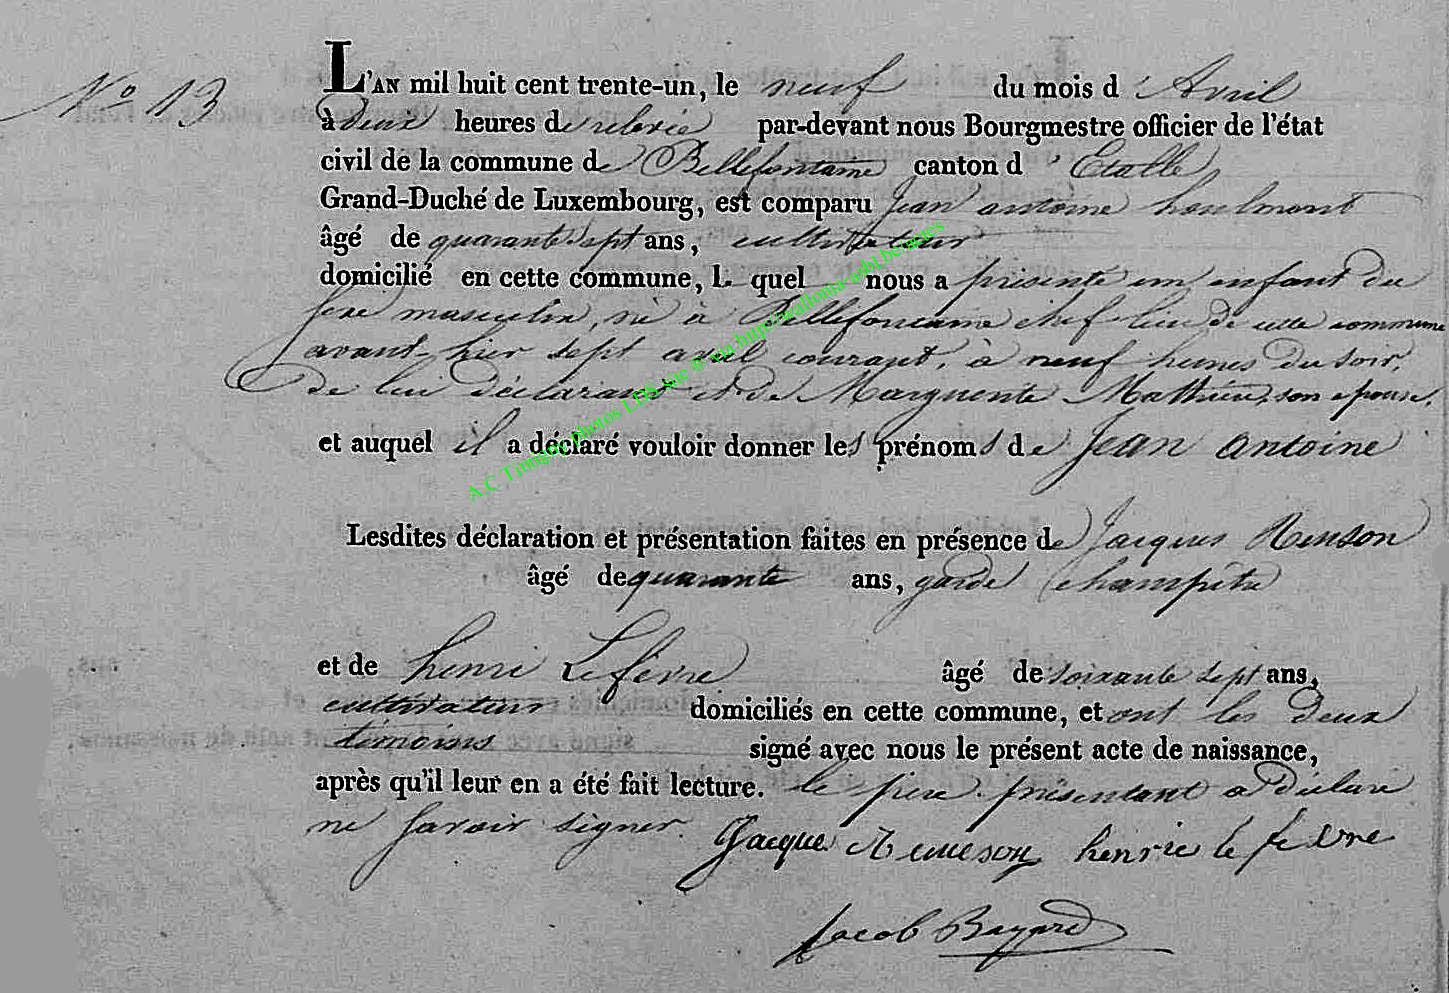 N° 13
L'AN mil huit cent trente-un, le neuf du mois d'Avril
à deux heures de relevée par-devant nous Bourgmestre officier de l'état
civil de la commune de Bellefontaine canton d'Etalle
Grand-Duché de Luxembourg, est comparu Jean antoine houlmont
âgé de quarante sept ans, cultivateur
domicilié en cette commune, L quel nous a présenté un enfant du
sexe masculin, né à Bellefontaine chef lieu de cette commune
avant-hier sept avril courant, à neuf heures du soir,
de lui déclarant et de Marguerite Mathieu, son epouse,
et auquel il a déclaré vouloir donner les prénoms de Jean Antoine
Lesdites déclaration et présentation faites en présence de Jacques Renson
âgé de quarante ans, garde Champêtre
et de henri Lefèvre âgé de soixante sept ans,
cultivateur domiciliés en cette commune, et ont les deux
témoins signé avec nous le présent acte de naissance,
après qu'il leur en a été fait lecture. le père présentant a déclaré
ne savoir signer.
Jacque henrie le fevre
Jacob Bayard
A.C Tintigny photos LDS site @ via http://wallonia-asbl.be/actes